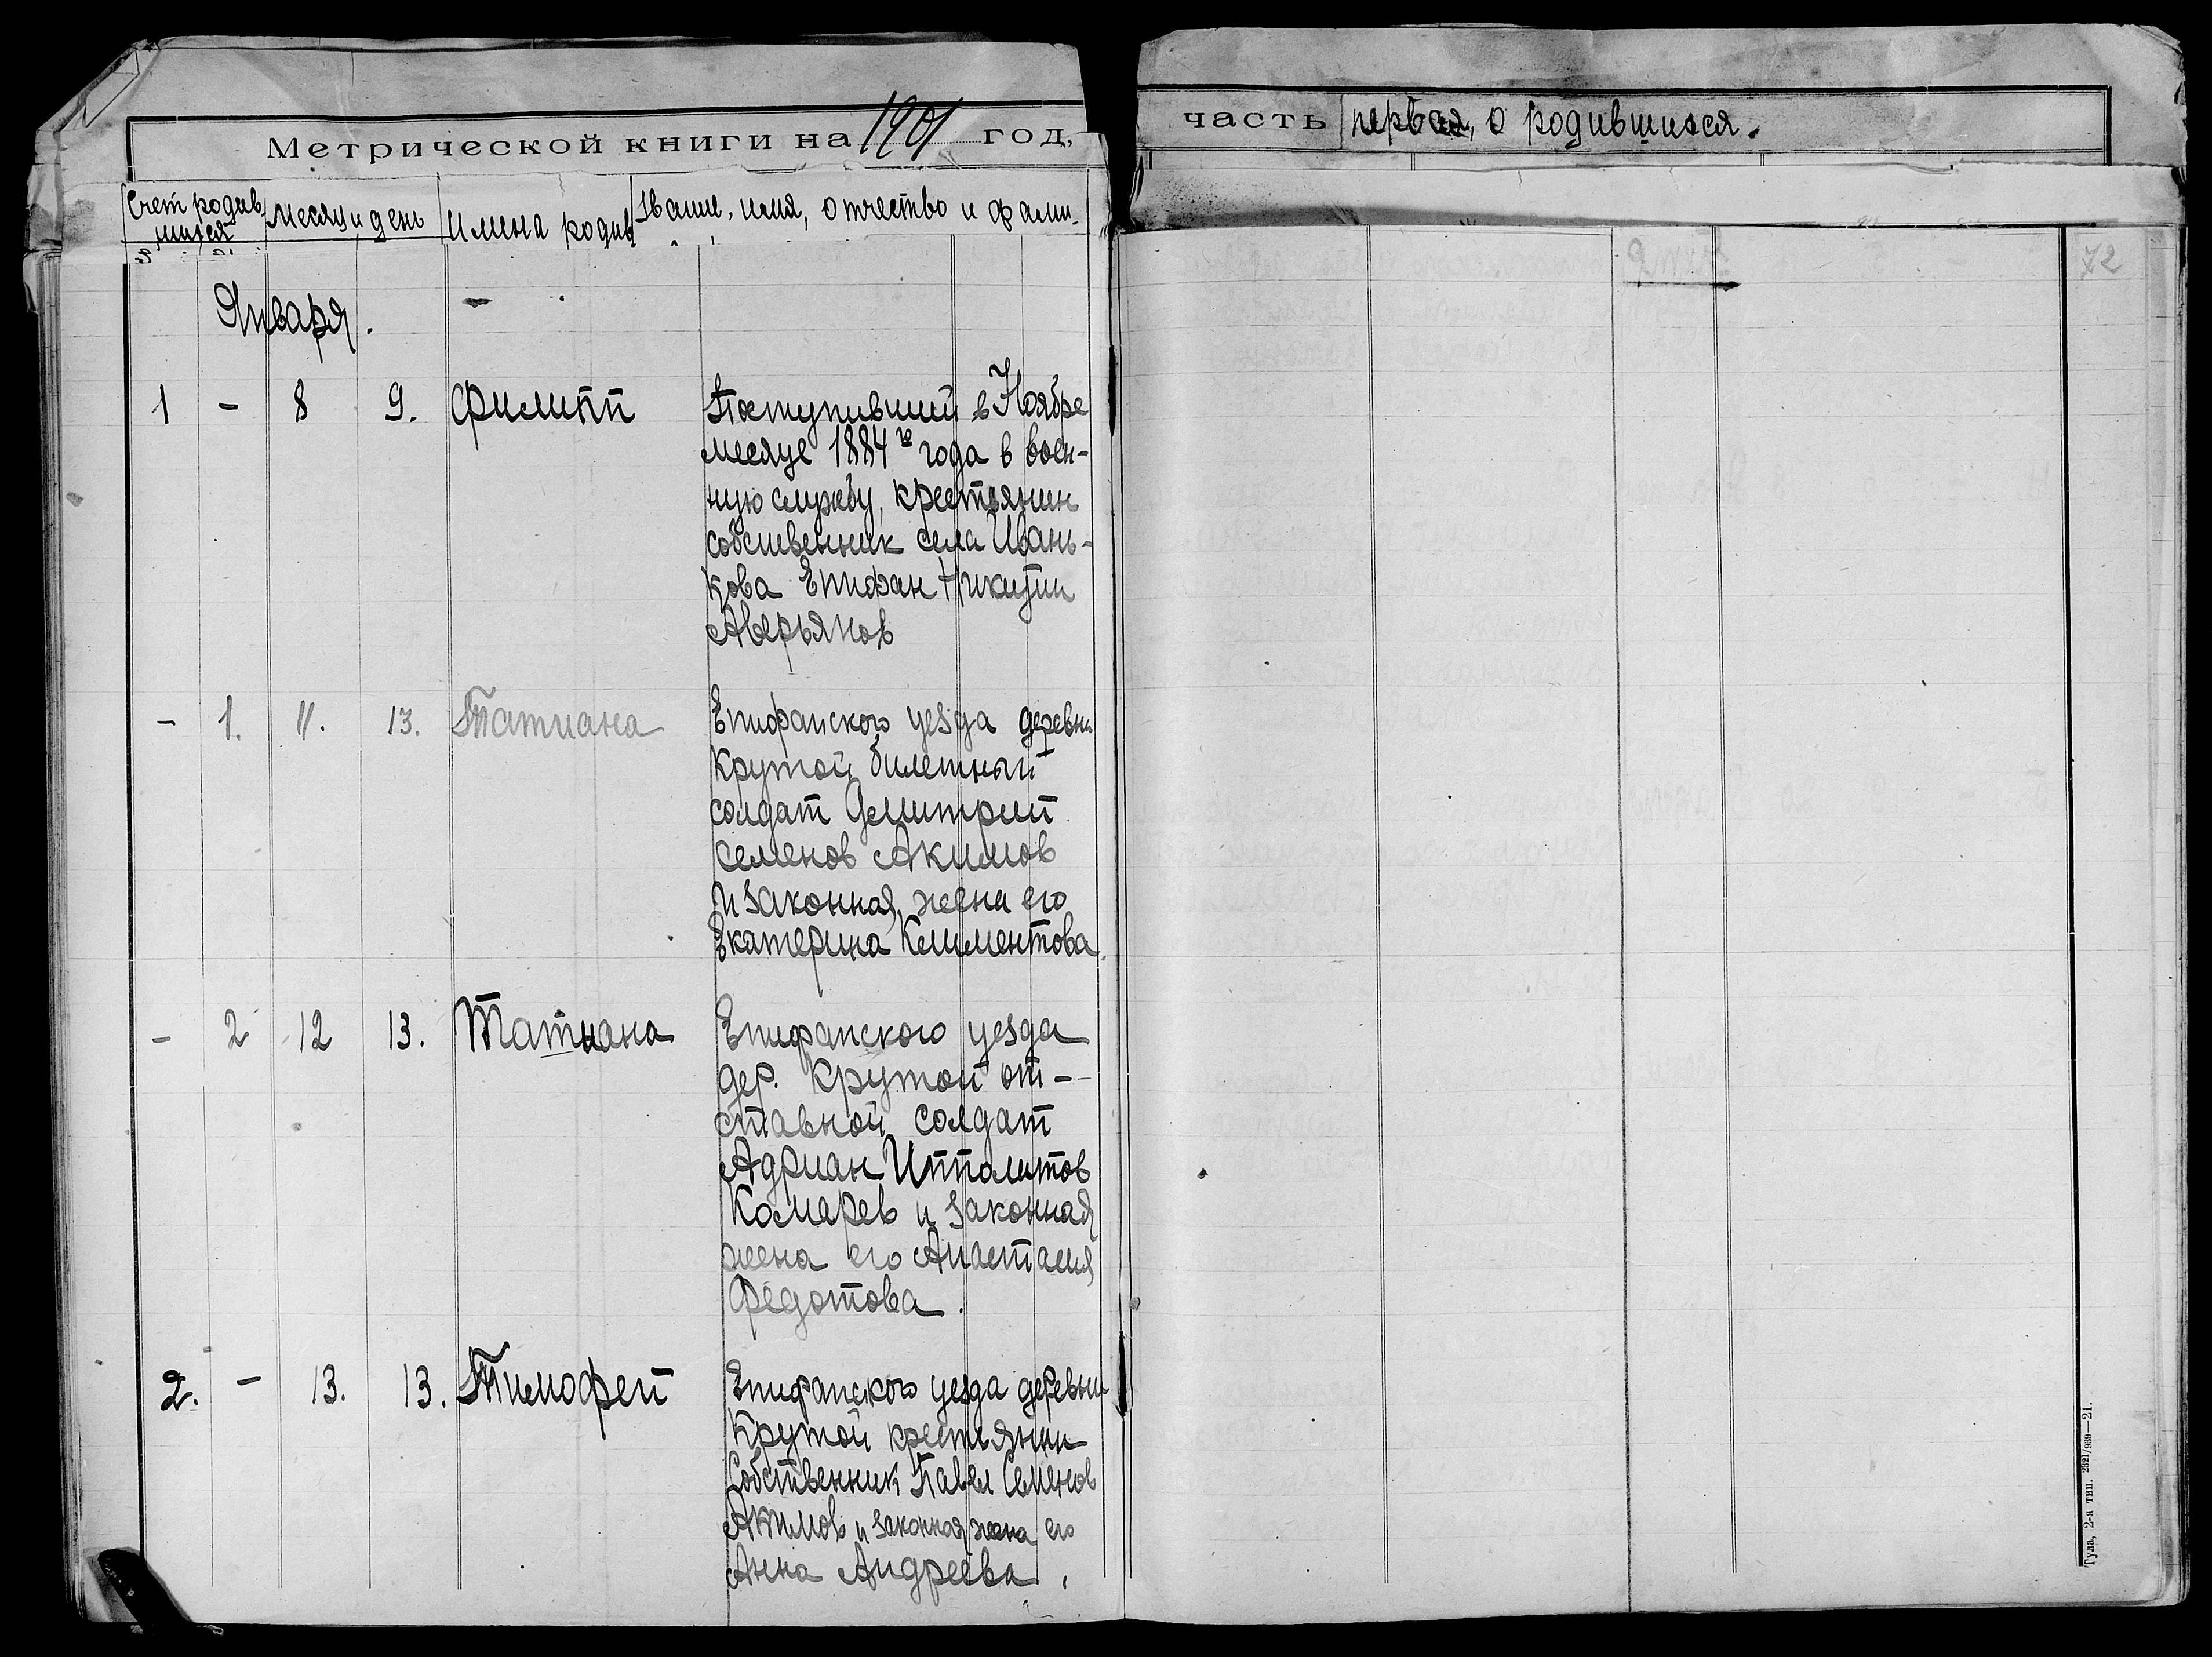 Метрической книги на 1901 год,
часть первая, о родившихся.
Счет родив
шихся
Месяц и день
Имена родив
Звание, имя, отчество и фами-
72
Января.
1 - 8 9. Филипп
Поступивший в Ноябре
месяце 1884го года в воен-
ную службу, крестьянин
собственник села Ивань-
кова Епифан Никитин
Аверьянов
- 1. 11. 13. Татиана
Епифанского уезда деревни
Крутой билетный
солдат Димитрий
Семенов Акимов
и законная жена его
Екатерина Климентова
- 2 12 13. Татиана
Епифанского уезда
дер. Крутой от-
ставной солдат
Адриан Ипполитов
Комарев и законная
жена его Анастасия
Федотова.
2. - 13. 13. Тимофей
Епифанского уезда деревни
Крутой крестьянин
Собственник Павел Семенов
Акимов и законная жена его
Анна Андреева.
Тула, 2-я тип. 2321/939—21.